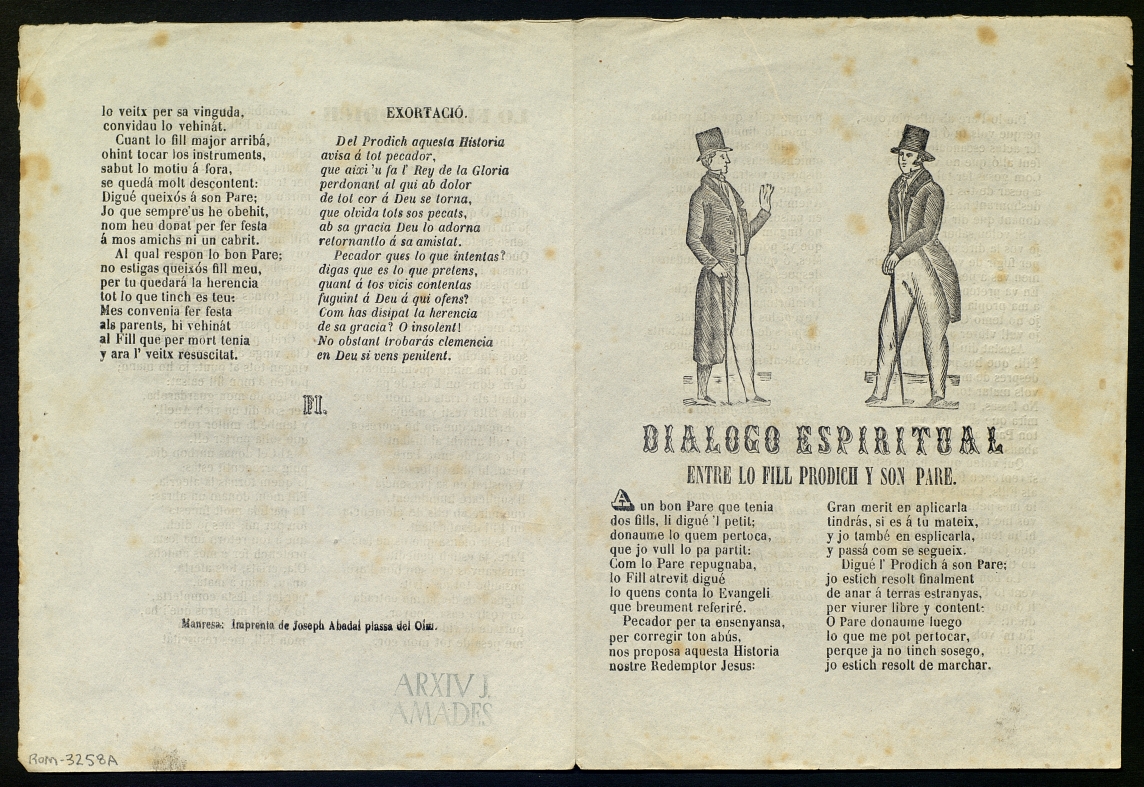 lo veitx per sa vinguda,
convidau lo vehinát.
Cuant lo fill major arribá,
ohint tocar los instruments,
sabut lo motiu á fora,
se quedá molt descontent:
Digué queixós á son Pare;
Jo que sempre'us he obehit,
nom heu donat per fer festa
á mos amichs ni un cabrit.
Al qual respon lo bon Pare;
no estigas queixós fill meu,
per tu quedará la herencia
tot lo que tinch es teu:
Mes convenia fer festa
als parents, hi vehinát
al Fill que per mort tenia
y ara l' veitx resuscitat.
EXORTACIÓ.
Del Prodich aquesta Historia
avisa á tot pecador,
que aixi 'u fa l' Rey de la Gloria
perdonant al qui ab dolor
de tot cor á Deu se torna,
que olvida tots sos pecats,
ab sa gracia Deu lo adorna
retornantlo á sa amistat.
Pecador ques lo que intentas?
digas que es lo que pretens,
quant á tos vicis contentas
fuguint á Deu á qui ofens?
Com has disipat la herencia
de sa gracia? O insolent!
No obstant trobarás clemencia
en Deu si vens penitent.
FI.
Manresa: Imprenta de Joseph Abadal plassa del Olm.
ARXIV J.
AMADES
ROM-3258A
DIALOGO ESPIRITUAL
ENTRE LO FILL PRODICH Y SON PARE.
A un bon Pare que tenia
dos fills, li digué 'l petit;
donaume lo quem pertoca,
que jo vull lo pa partit:
Com lo Pare repugnaba,
lo Fill atrevit digué
lo quens conta lo Evangeli
que breument referiré.
Pecador per ta ensenyansa,
per corregir ton abús,
nos proposa aquesta Historia
nostre Redemptor Jesus:
Gran merit en aplicarla
tindrás, si es á tu mateix,
y jo també en esplicarla,
y passá com se segueix.
Digué l' Prodich á son Pare;
jo estich resolt finalment
de anar á terras estranyas,
per viurer libre y content:
O Pare donaume luego
lo que me pot pertocar,
perque ja no tinch sosego,
jo estich resolt de marchar.